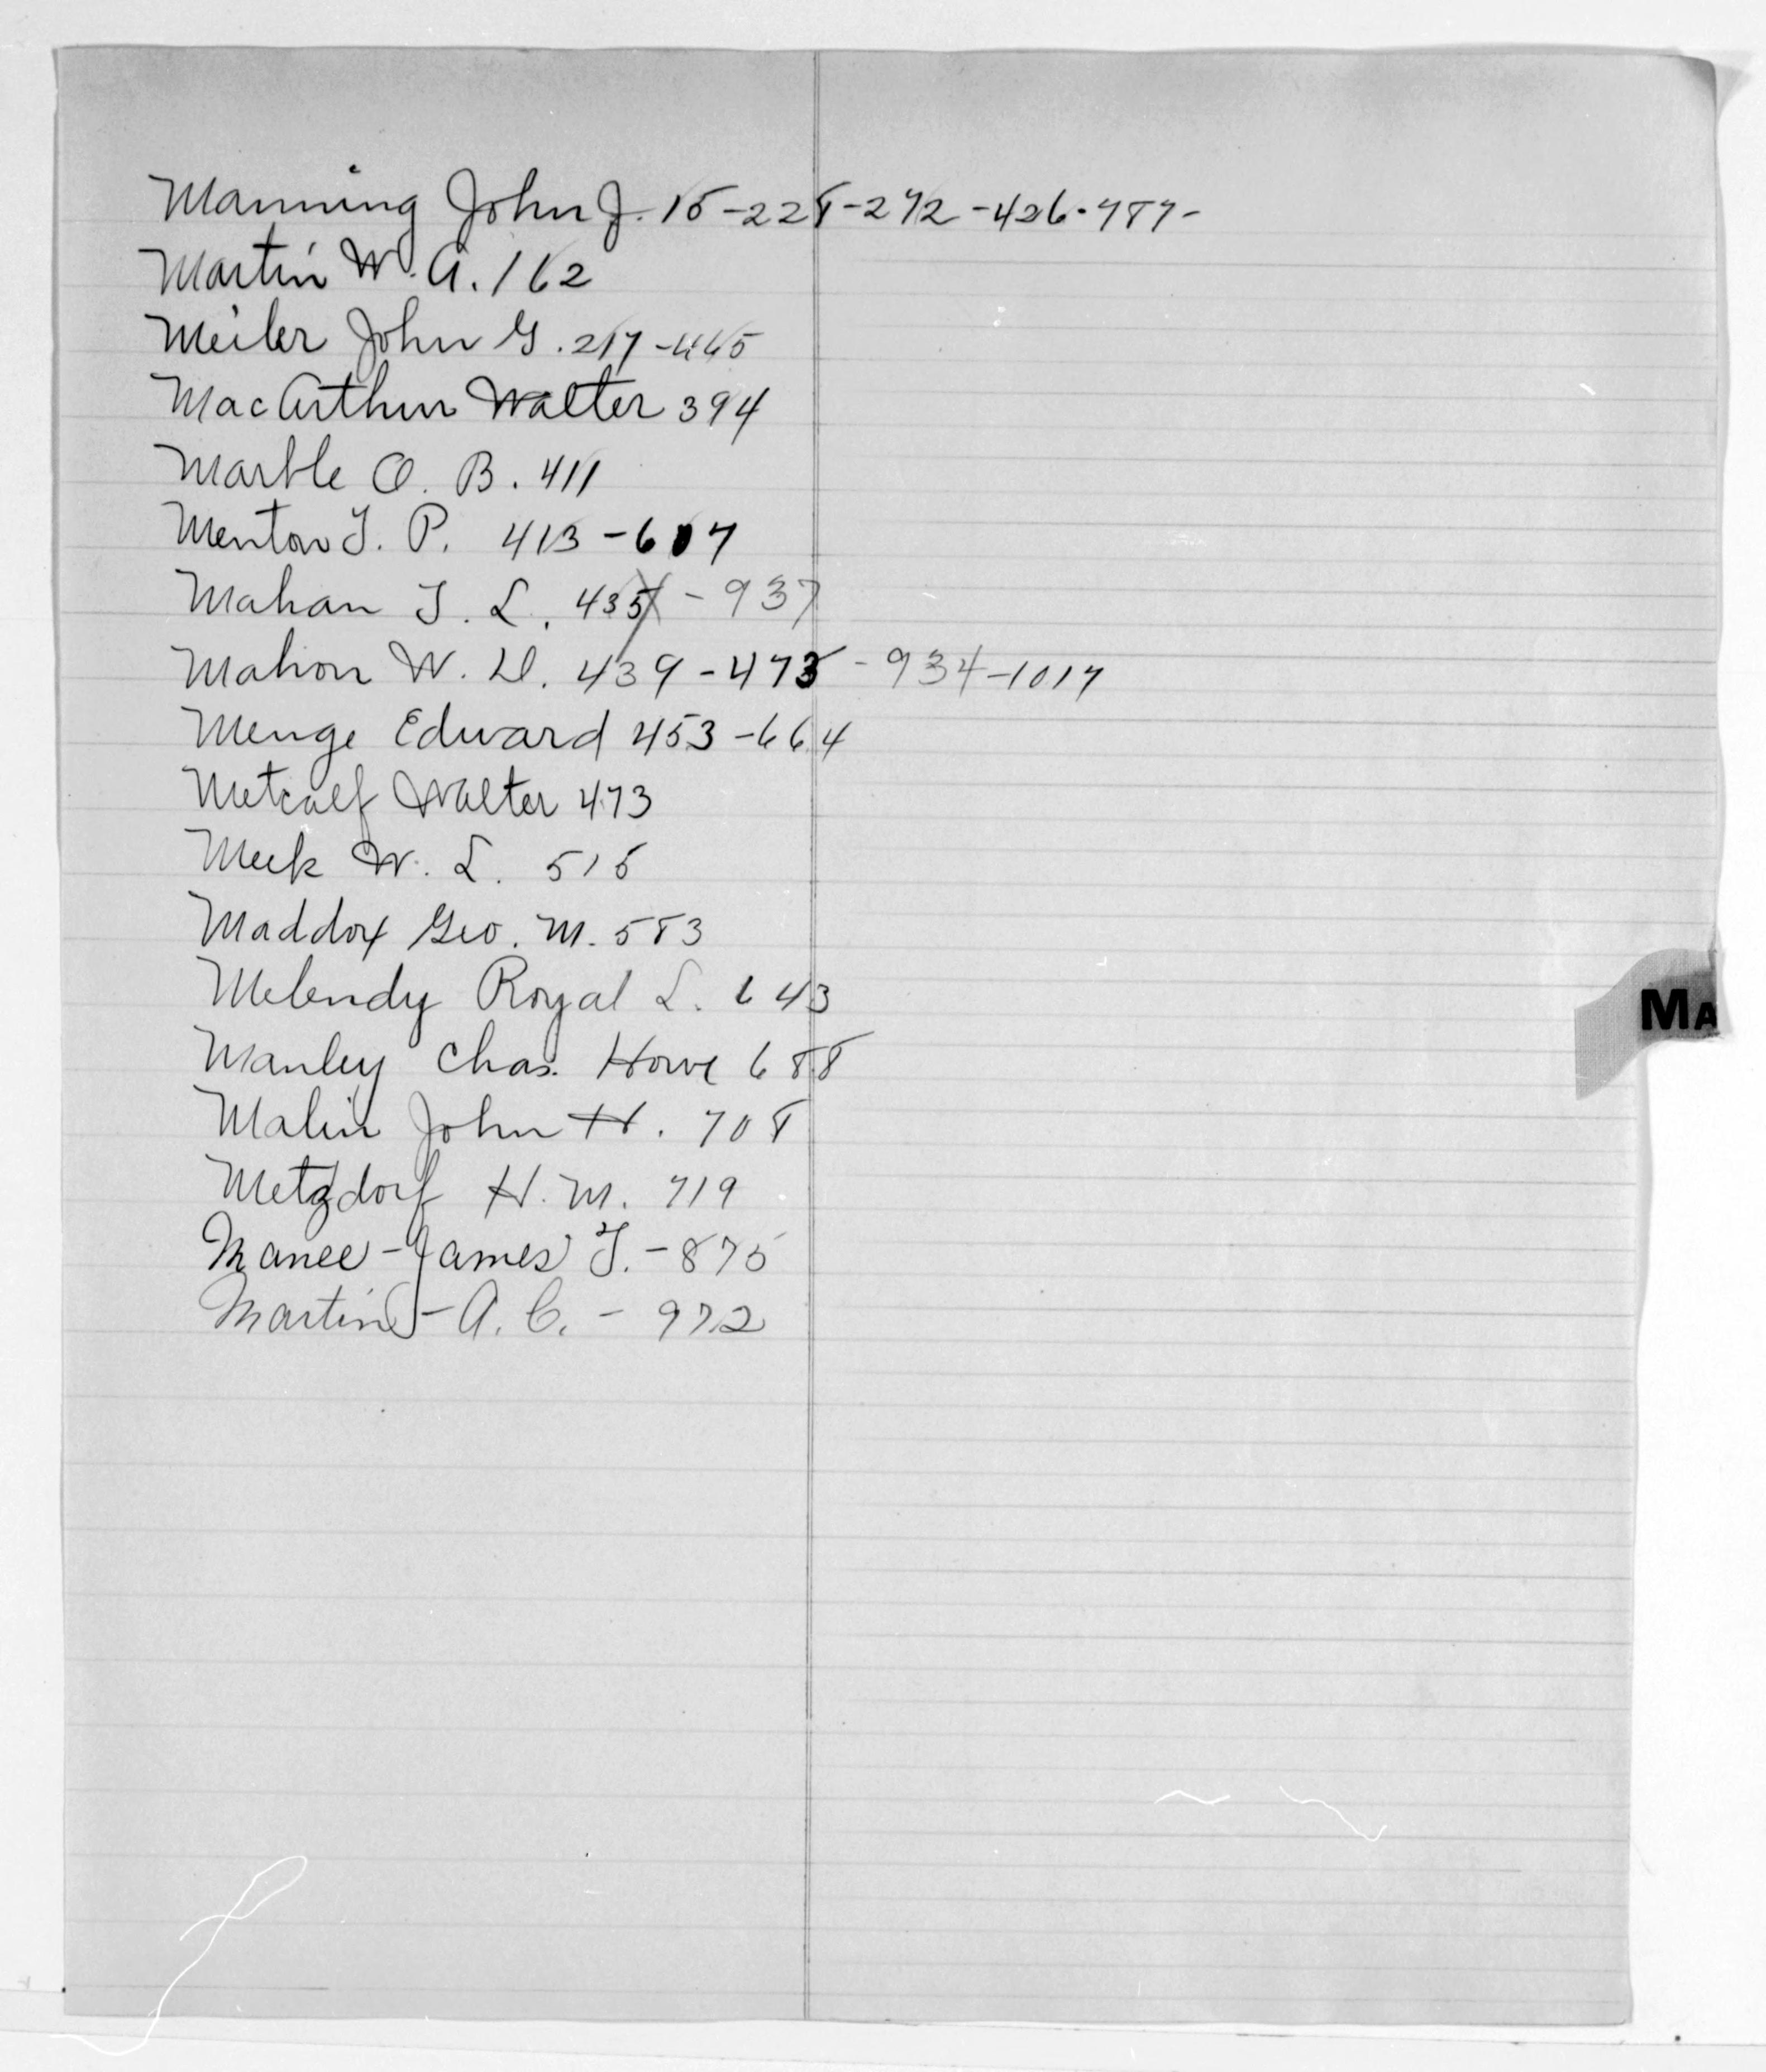 Manning John J. 15-228-272-426-787-
Martin W. A. 162
Meiler John G. 217-465
MacArthur Walter 394
Marble O. B. 411
Menton T. P. 413-607
Mahan T. L. 435-937
Mahon W. D. 439-473-934-1017
Menge Edward 453-664
Metcalf Walter 473
Meek W. L. 515
Maddox Geo. M. 583
Melendy Royal L. 643
Manley Chas. Howe 688
Malin John H. 708
Metzdorf H. M. 719
Manee-James T.-875
Martin-A. C.-972
MA